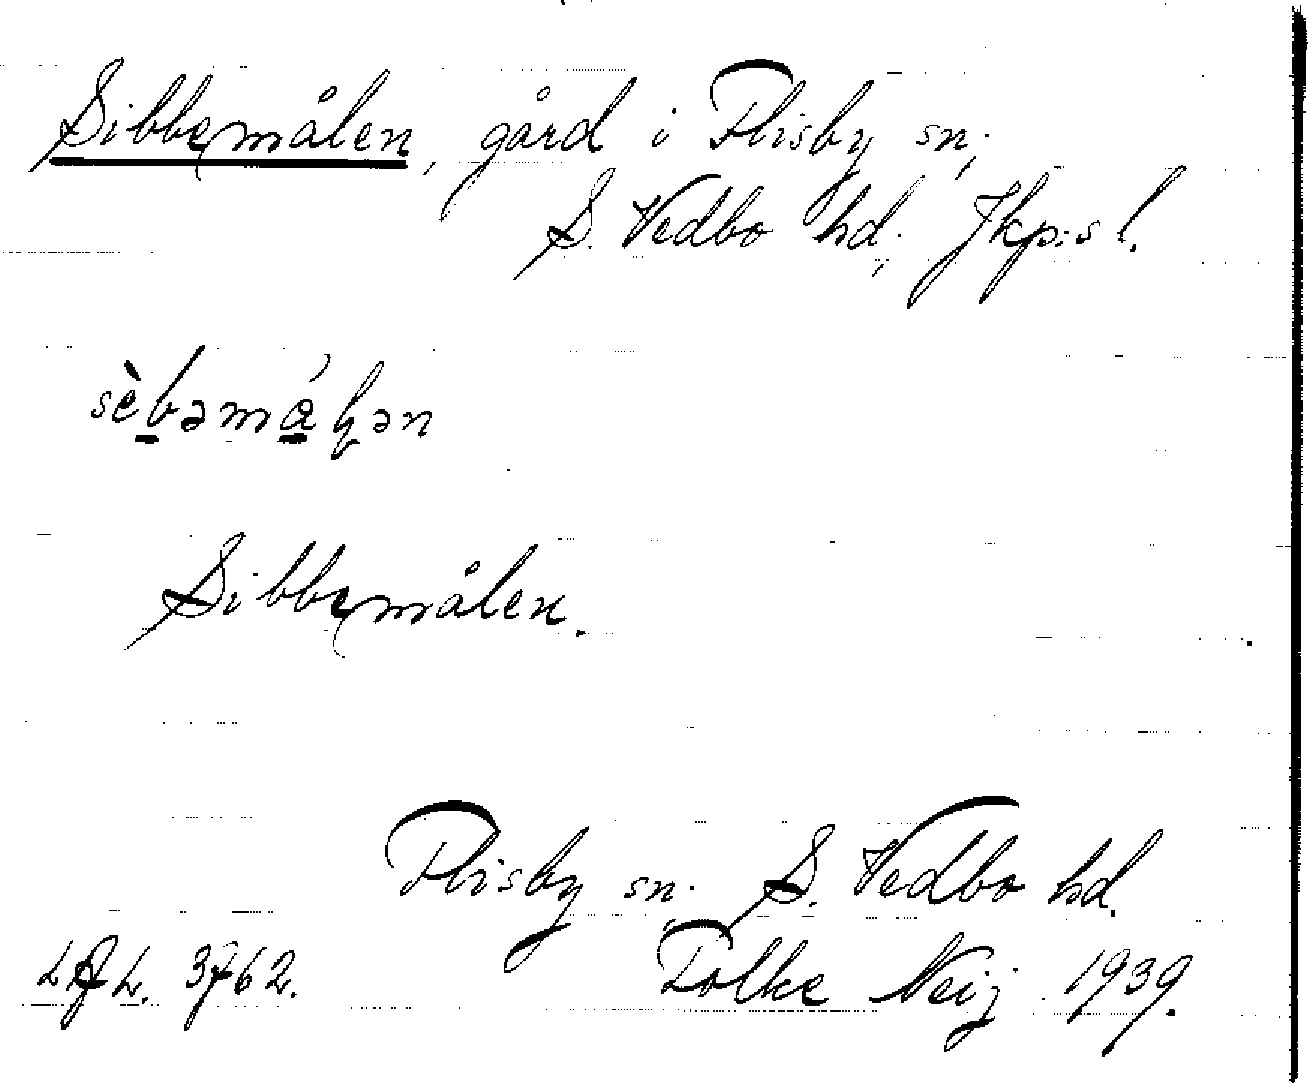 Sibbemålen, gård i Flisby sn;
S. Vedbo hd; Jkp:s l.
sèbəmåɫən
Sibbemålen.
Flisby sn; S. Vedbo hd.
3762. Folke Neij 1939.